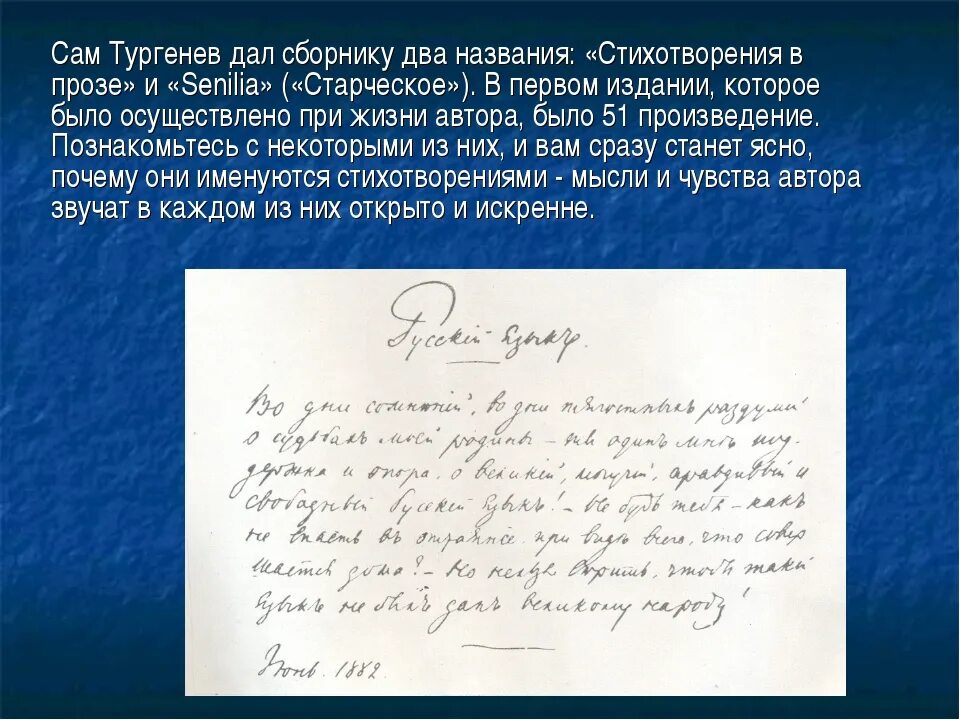 Сам Тургенев дал сборнику два названия: «Стихотворения в
прозе» и «Senilia» («Старческое»). В первом издании, которое
было осуществлено при жизни автора, было 51 произведение.
Познакомьтесь с некоторыми из них, и вам сразу станет ясно,
почему они именуются стихотворениями - мысли и чувства автора
звучат в каждом из них открыто и искренне.
Русскій языкъ.
Во дни сомнѣній, во дни тягостныхъ раздумій
о судьбахъ моей родины – ты одинъ мнѣ под-
держка и опора, о великій, могучій, правдивый и
свободный Русскій Языкъ! – Не будь тебя – какъ
не впасть въ отчаяніе при видѣ всего, что совер
шается дома? – Но нельзя вѣрить, чтобы такой
Языкъ не былъ данъ великому народу!
Іюнь. 1882